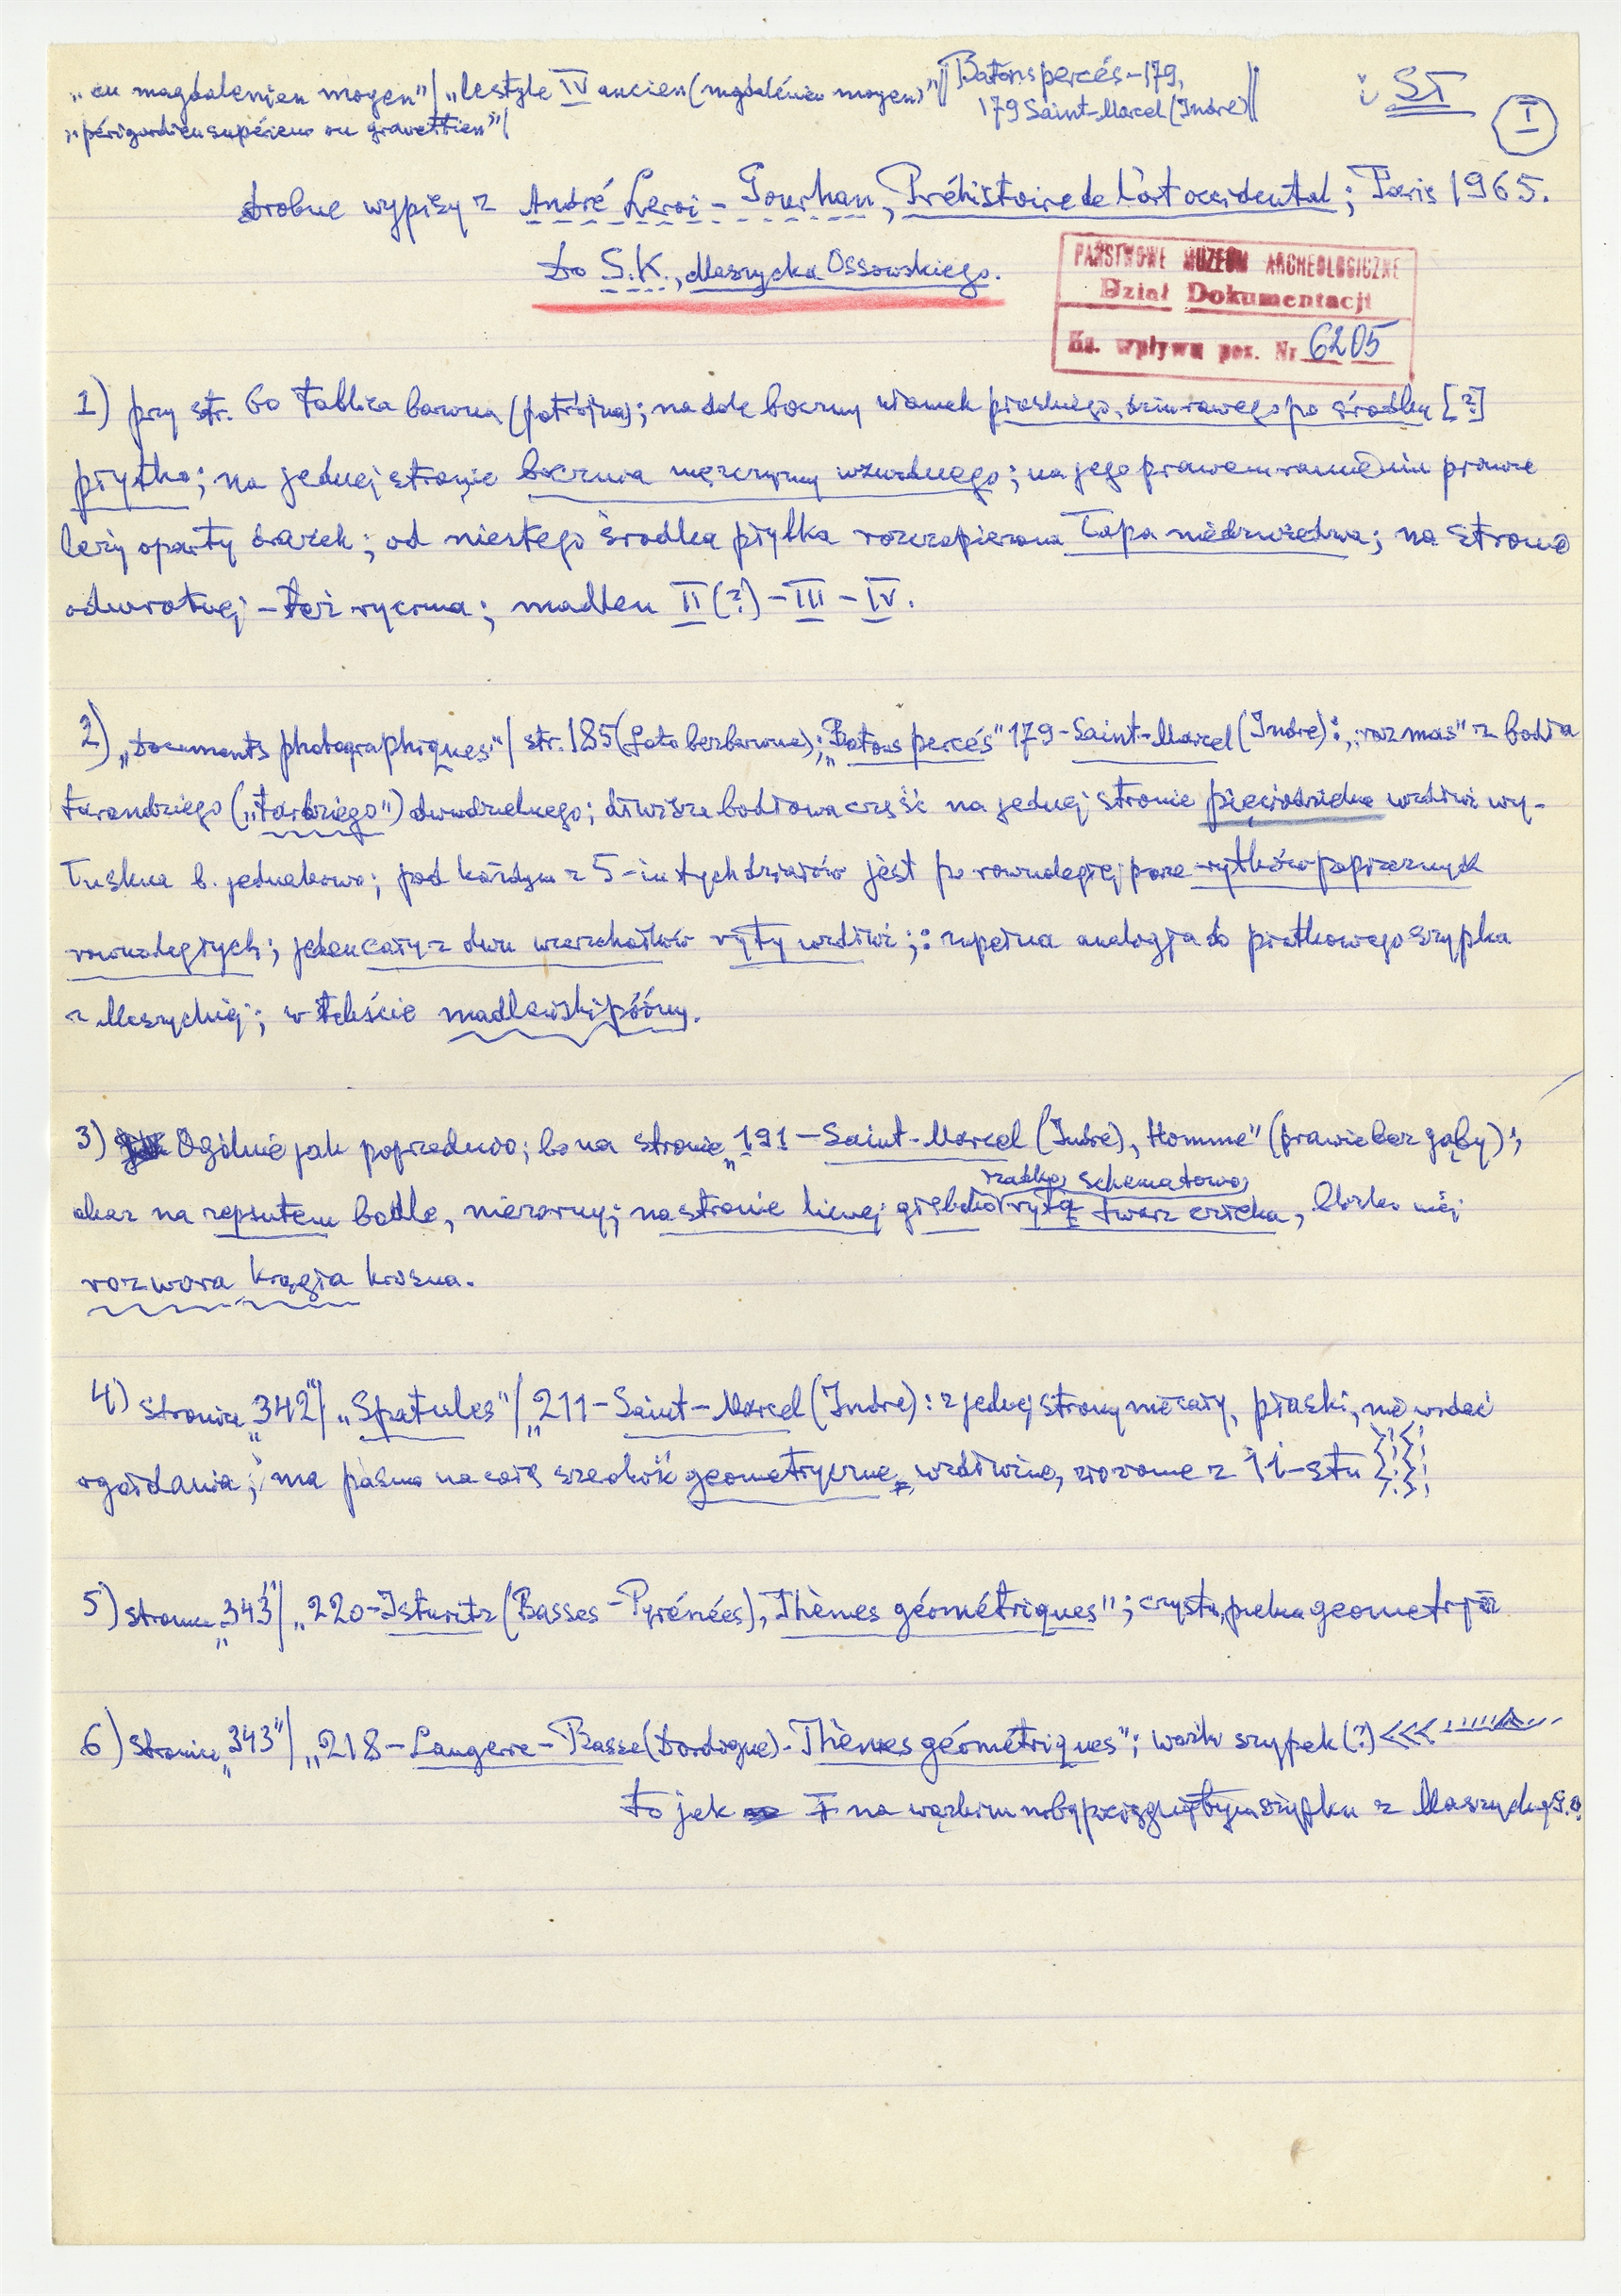 „au magdalenien moyen"/ „le style IV ancien (magdalénien moyen)"// Batons percés-179,
179 Saint-Marcel (Indre)//
„périgordien supérieur ou gravettien"/
ST
I
drobne wypisy z André Leroi-Gourhan, Préhistoire de l'art occidental; Paris 1965.
do S.K., Maszycka Ossowskiego.
PAŃSTWOWE MUZEUM ARCHEOLOGICZNE
Dział Dokumentacji
Ks. wpływu poz. Nr 6205
1) przy str. 60 tablica barwna (potrójna); na dole boczny ułamek płaskiego, dziurawego po środku [?]
płytka; na jednej stronie boczna mężczyzny wzwodnego; na jego prawem ramieniu prawie
leży oparty drążek; od niestego środka płytka rozczapierzona łapa niedźwiedzia; na stronie
odwrotnej - też ryczna; madlen II (?) - III - IV.
2) „Documents photographiques"/ str. 185 (foto bezbarwne); „Batons percés" 179-Saint-Marcel (Indre): „rozmas" z bodła
tarandziego („tardziego") dwudzielnego; dłuższa bodłowa część na jednej stronie pięciodzielna wzdłuż wy-
łuskna b. jednakowo; pod każdym z 5-iu tych działów jest po równoległej parze rytków poprzecznych
równoległych; jeden cały z dwu wierzchołków ryty wzdłuż;: zupełna analogja do piątkowego szypka
z Maszyckiej; w tekście madleński późny.
3) Ogólnie jak poprzednio; bo na stronie „191-Saint-Marcel (Indre), Homme" (prawie bez gąby);
okaz na zepsutem bodle, niezorny; na stronie licnej głęboko ryta rzadko, schematowo, twarz człeka, blisko niej
rozwora krągła krosna.
4) stronica „342"/ „Spatules"/ „211-Saint-Marcel (Indre): z jednej strony niecały, płaski, nie widać
ogoidania; ma pasmo na całą szerokość geometryczne, wzdłużne, złożone z 11-stu
5) stronica „343"/ „220-Isturitz (Basses-Pyrénées), Thèmes géométriques"; czysta, piękna geometrja
6) stronica „343"/ „218-Laugerie-Basse (Dordogne)-Thèmes géométriques"; wąski szypek (?) <<<
to jak na wąskim szypku z Maszyckiej